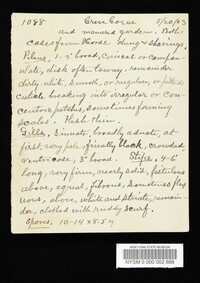 1098 Cren Cesar 5/20/03
and manured garden. Both
cases from Horse dung & shavings.
Pileus, 1-2" broad, conical or campan-
ulate, disk often tawny, remainder
dirty-white, smooth, or rugulose, or pitted.
Cuticle breaking into irregular or con-
centric patches, sometimes forming
scales. Flesh thin.
Gills, Sinuate, broadly adnate, at
first, very pale, finally black, crowded
ventricose, 3" broad. Stipe, 4-6"
long, very firm, nearly solid, fistulous
above, equal, fibrous, sometimes flex
uous, above, white and striate, remain-
der, clothed with ruddy scurf.
Spores, 10-14 x 8.5 µ
NEW YORK STATE MUSEUM
NYSM 0 000 002 888